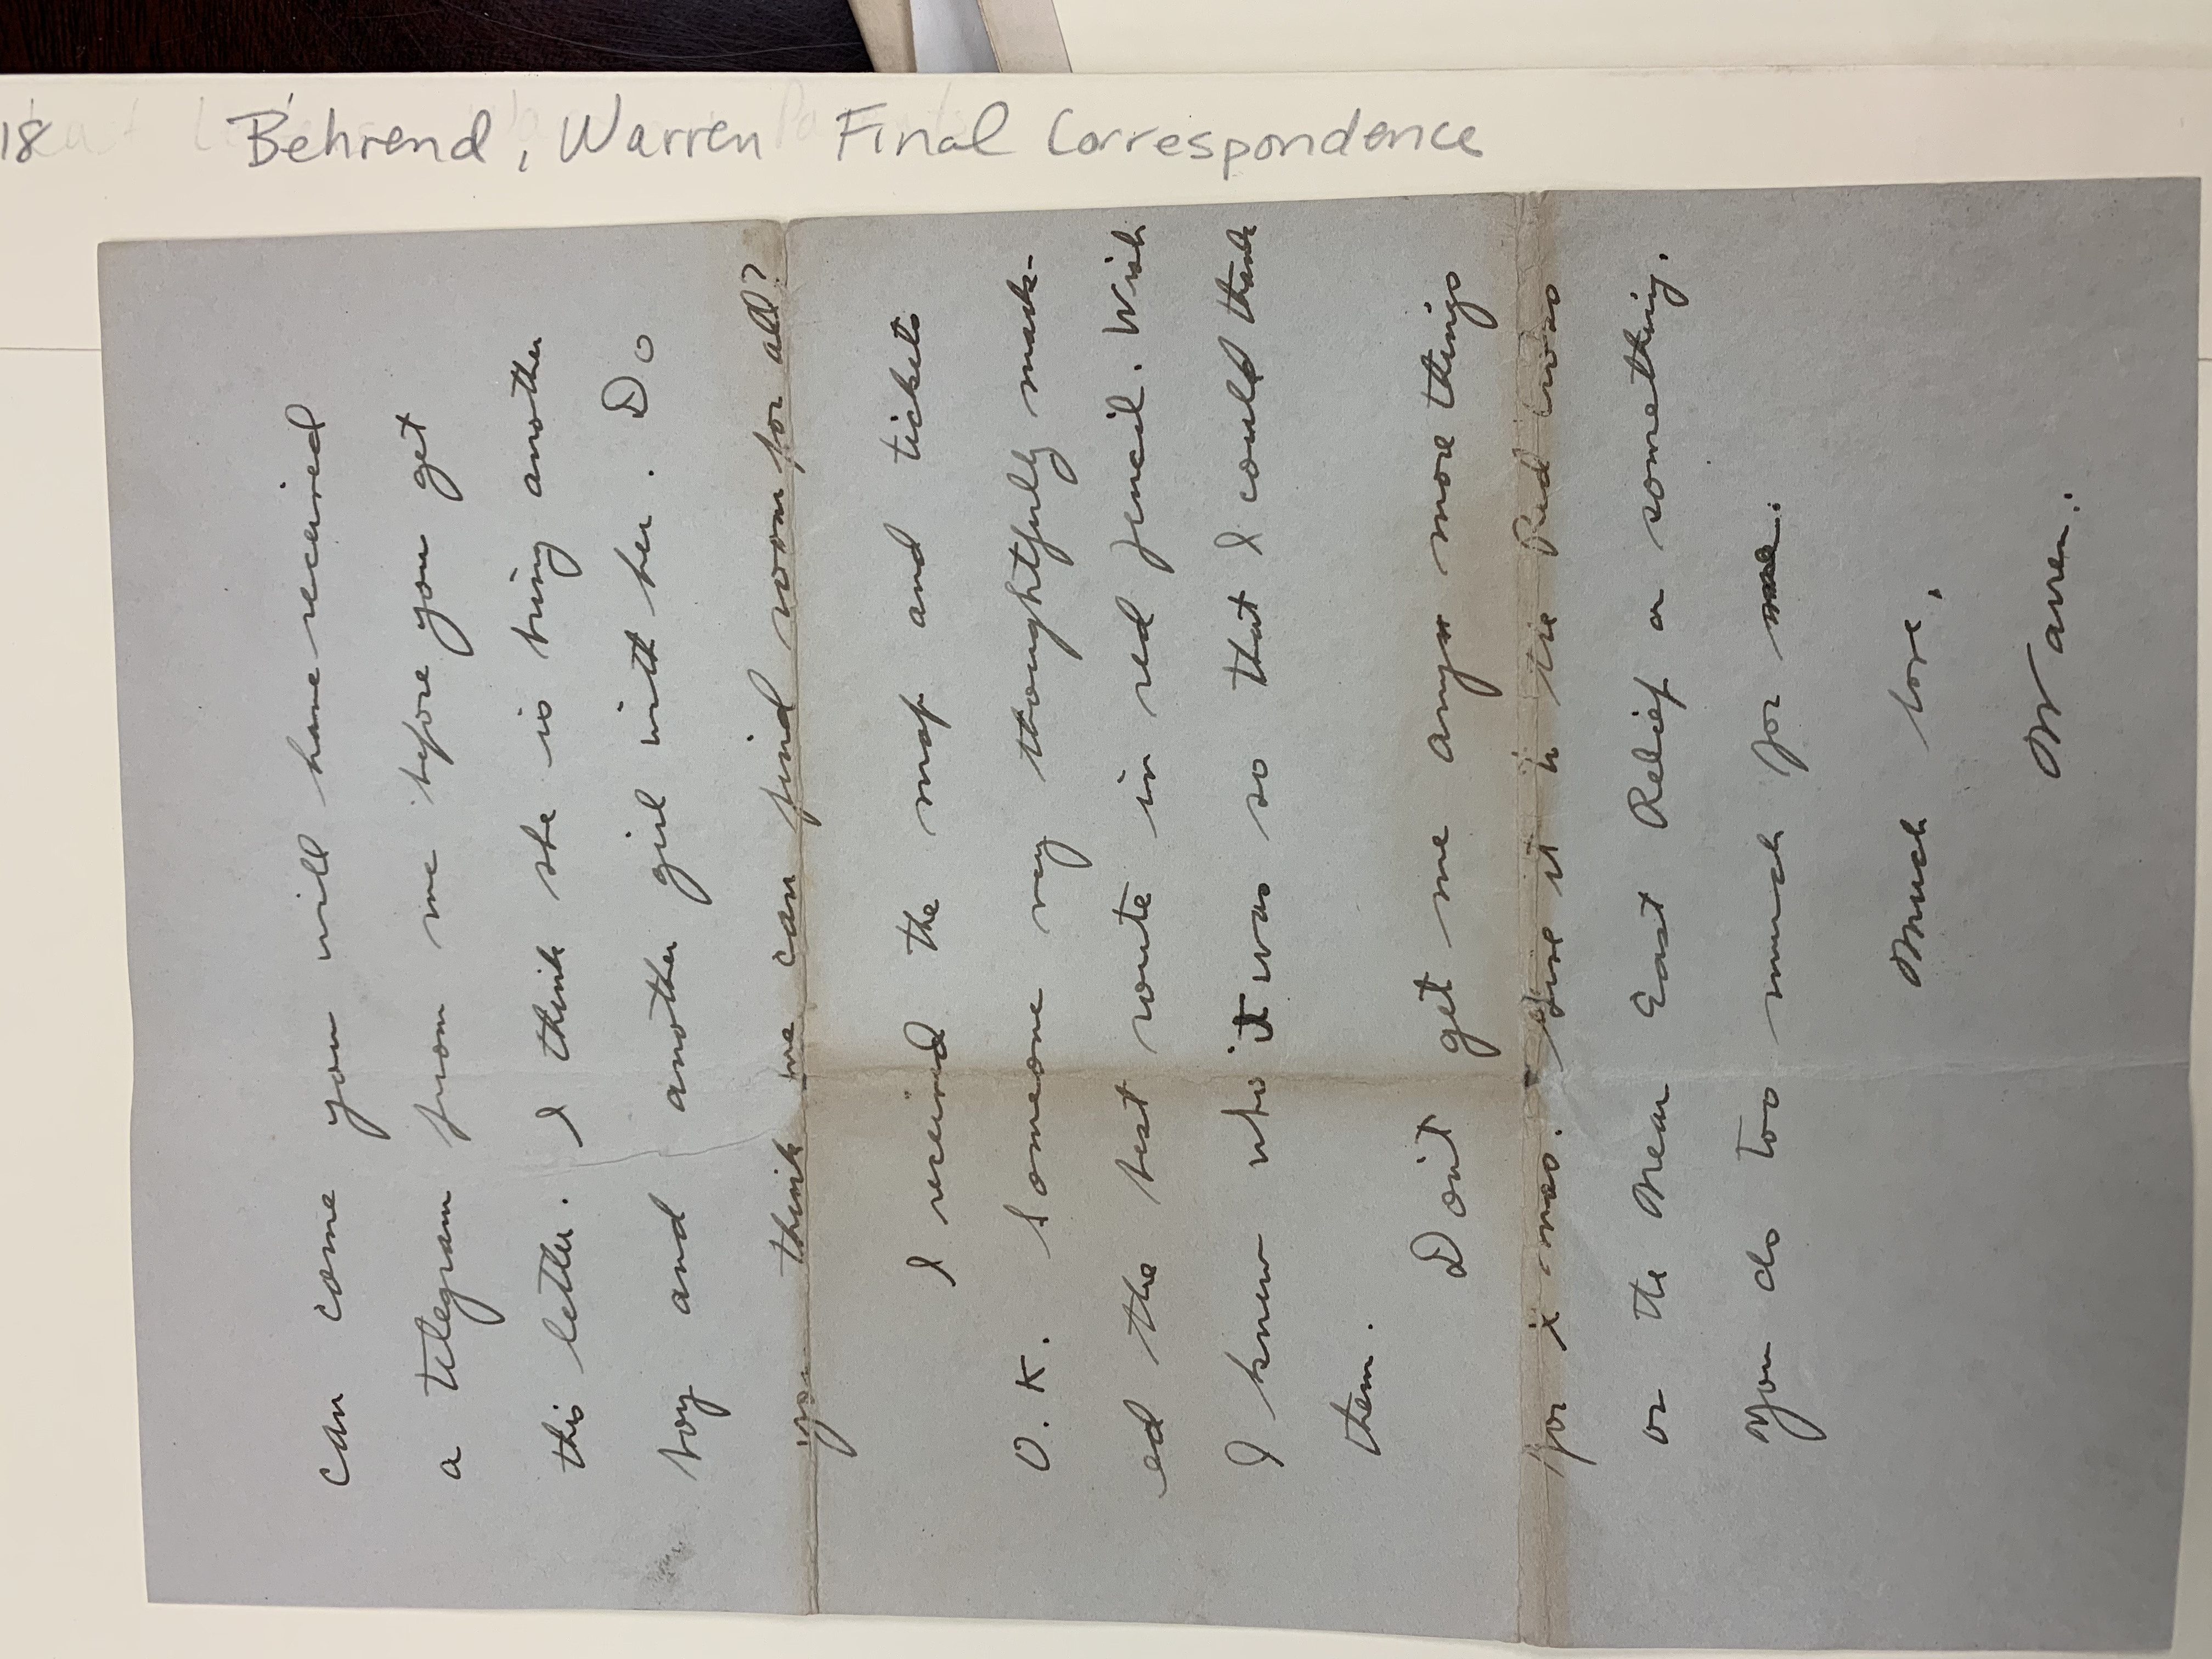 can come you will have received
a telegram from me before you get
this letter. I think she is bring another
boy and another girl with her. Do
you think we can find room for all?
I received the map and tickets
O.K. Someone very thoughtfully mark-
ed the best route in red pencil. Wish
I knew who it was so that I could thank
them.
Don't get me any more things
for x mas. Give it to the Red Cross
or the Near East Relief or something.
You do too much for me.
Much love,
Warren.
Behrend, Warren Final Correspondence